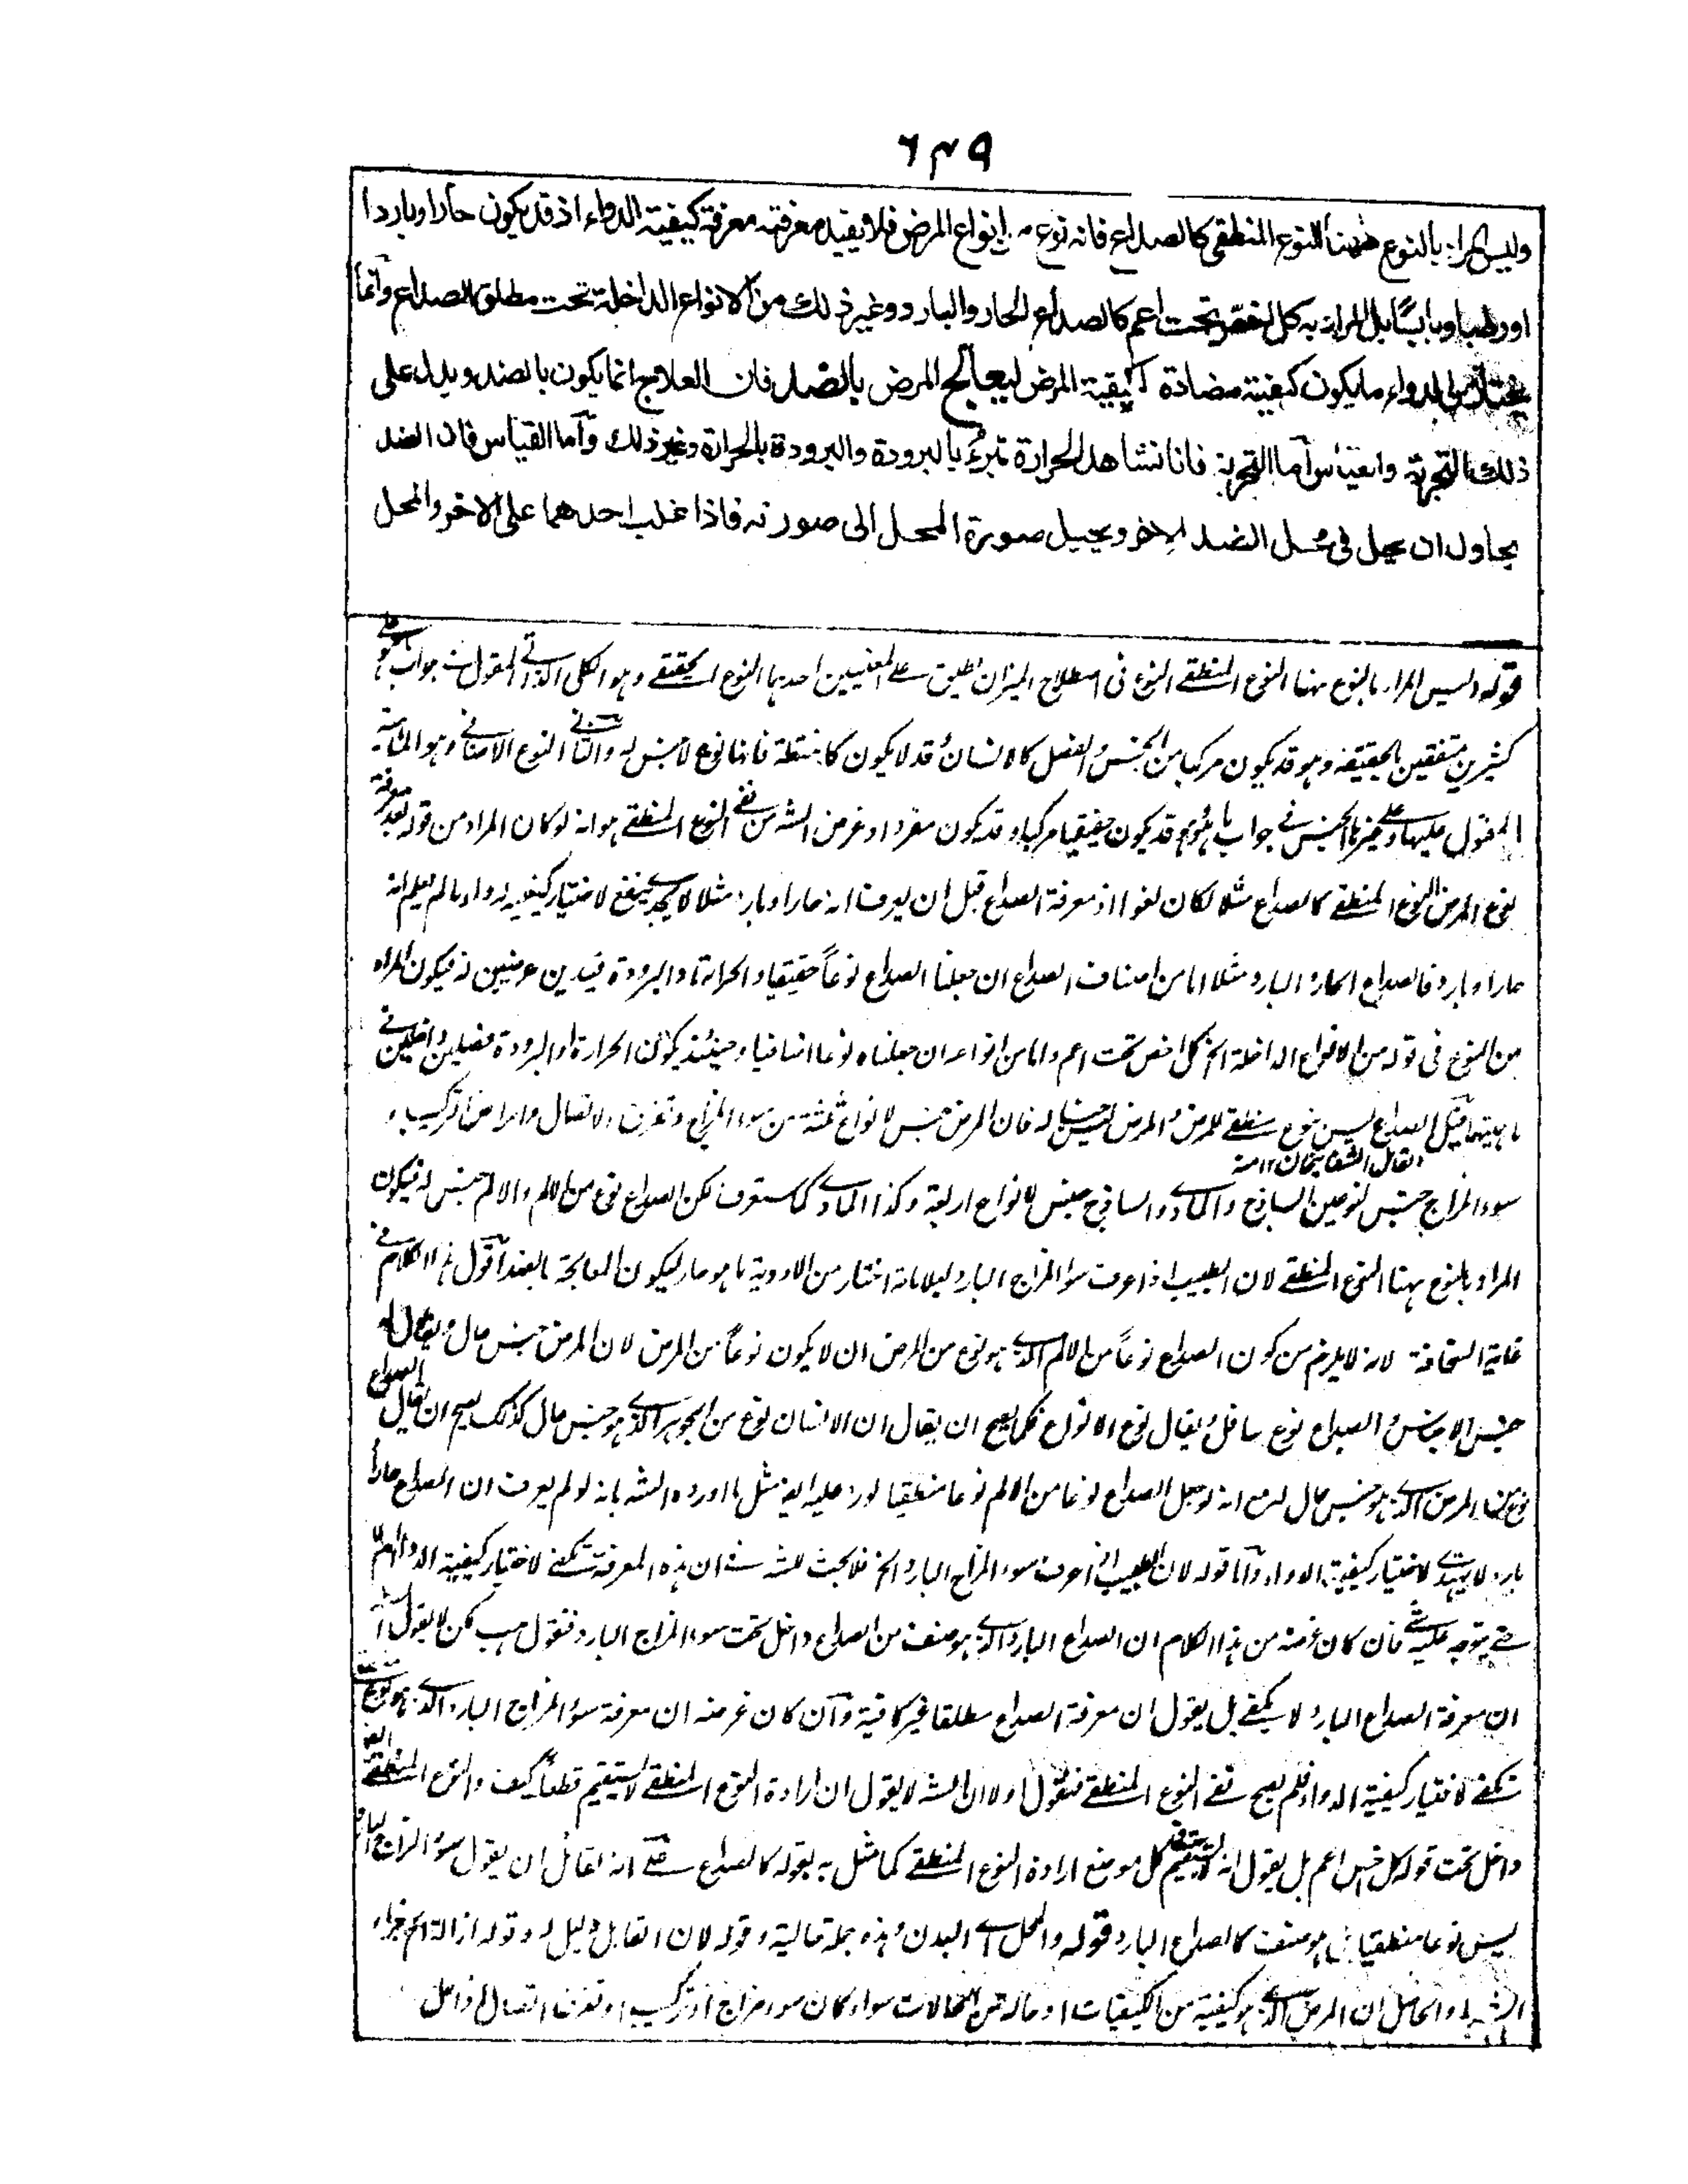 ٦٣٩
وليس المراد بالنوع ههنا النوع المنطقى كالصداع فانه نوع من انواع المرض فلا يفيد معرفته معرفة كيفية الدواء اذ قد يكون حارا وباردا
او رطبا ويابسًا بل المراد به كل اخص تحت اعم كالصداع الحار والبارد وغير ذلك من الانواع الداخلة تحت مطلق الصداع وانما
يختار من الدواء ما يكون كيفيته مضادة لكيفية المرض ليعالج المرض بالضد فان العلاج انما يكون بالضد ويدل على
ذلك التجربة والقياس اما التجربة فانا نشاهد الحرارة تبرئ بالبرودة والبرودة بالحرارة وغير ذلك واما القياس فان الضد
يحاول ان يحل فى محل الضد الاخر ويحيل صورة المحل الى صورته فاذا غلب احدهما على الاخر والمحل
قوله وليس المراد بالنوع ههنا النوع المنطقے النوع فى اصطلاح الميزان يطلق علے المعنيين احدهما النوع الحقيقے وهو الكلى الذاتے المقول فے جواب ما هو علے
كثيرين متفقين بالحقيقة وهو قد يكون مركبا من الجنس والفصل كالانسان وقد لا يكون كالنقطة فانها نوع لا جنس له والثانے النوع الاضافے وهو الماهية
المقول عليها وعلے غيرها الجنس فے جواب ما هو وهو قد يكون حقيقيا مركبا وقد يكون مفردا وغرض الشه من نفے النوع المنطقے هو انه لو كان المراد من قوله بعد معرفة
نوع المرض النوع المنطقے كالصداع مثلا لكان لغوا اذ معرفة الصداع قبل ان يعرف انه حار او بارد مثلا لا يجدے ينفع لاختيار كيفية الدواء ما لم يعلم انه
حار او بارد فالصداع الحار والبارد مثلا اما من اصناف الصداع ان جعلنا الصداع نوعاً حقيقيا والحرارة والبرودة قيدين عرضيين له فيكون المراد
من النوع فى قوله من الانواع الداخلة الخ كل اخص تحت اعم واما من انواعه ان جعلناه نوعا اضافيا وحينئذ يكون الحرارة والبرودة فصلين داخلين فے
ماهيتهما قيل الصداع ليس بنوع منطقے للمرض والمرض ليس جنسا له فان المرض جنس لانواع ثلثة من سوء المزاج وتفرق الاتصال وامراض التركيب و
سوء المزاج جنس لنوعين الساذج والمادے والساذج جنس لانواع اربعة وكذا المادے كما ستعرف لكن الصداع نوع من الالم والالم جنس له فيكون
المراد بالنوع ههنا النوع المنطقے لان الطبيب اذا عرف سوء المزاج البارد بعلاماته اختار من الادوية ما هو حار ليكون المعالجة بالضد اقول هذا الكلام فے
غاية السخافة لانه لا يلزم من كون الصداع نوعاً من الالم الذے هو نوع من المرض ان لا يكون نوعاً من المرض لان المرض جنس عال ويقال له
جنس الاجناس والصداع نوع سافل ويقال نوع الانواع فكما يصح ان يقال ان الانسان نوع من الجوهر الذے هو جنس عال كذلك يصح ان يقال الصداع
نوع من المرض الذے هو جنس عال انه لو جعل الصداع نوعا من الالم نوعا منطقيا لورد عليه ايضا مثل ما اورده الشه بانه لو لم يعرف ان الصداع حار او
بارد لا يهتدے لاختيار كيفية الدواء واما قوله لان الطبيب اذا عرف سوء المزاج البارد الخ فلا بحث للشه فے ان هذه المعرفة تكفے لاختيار كيفية الدواء ام لا
حتے يتوجه عليه فان كان غرضه من هذا الكلام ان الصداع البارد الذے هو صنف من الصداع داخل تحت سوء المزاج البارد فنقول هب لكن لا يقول الشه
ان معرفة الصداع البارد لا يكفے بل يقول ان معرفة الصداع مطلقا غير كافية وان كان غرضه ان معرفة سوء المزاج البارد الذے هو نوع
تكفے لاختيار كيفية الدواء فلم يصح نفے النوع المنطقے فنقول اولا ان الشه لا يقول ان ارادة النوع المنطقے لا يستقيم قطعاً كيف والنوع المنطقے
داخل تحت قوله كل اخص اعم بل يقول انه لا يستقيم فے كل موضع ارادة النوع المنطقے كما مثل به بقوله كالصداع علے انه لقائل ان يقول سوء المزاج البارد
ليس نوعا منطقيا بل هو صنف كالصداع البارد قوله والمحل اے البدن وهذه جملة حالية وقوله لان القابل دليل له وقوله ازالة الخ جزاء
الشرط والحاصل ان المرض الذے هو كيفية من الكيفيات او حالة من الحالات سواء كان سوء مزاج او تركيب او تفرق اتصال اذا حل